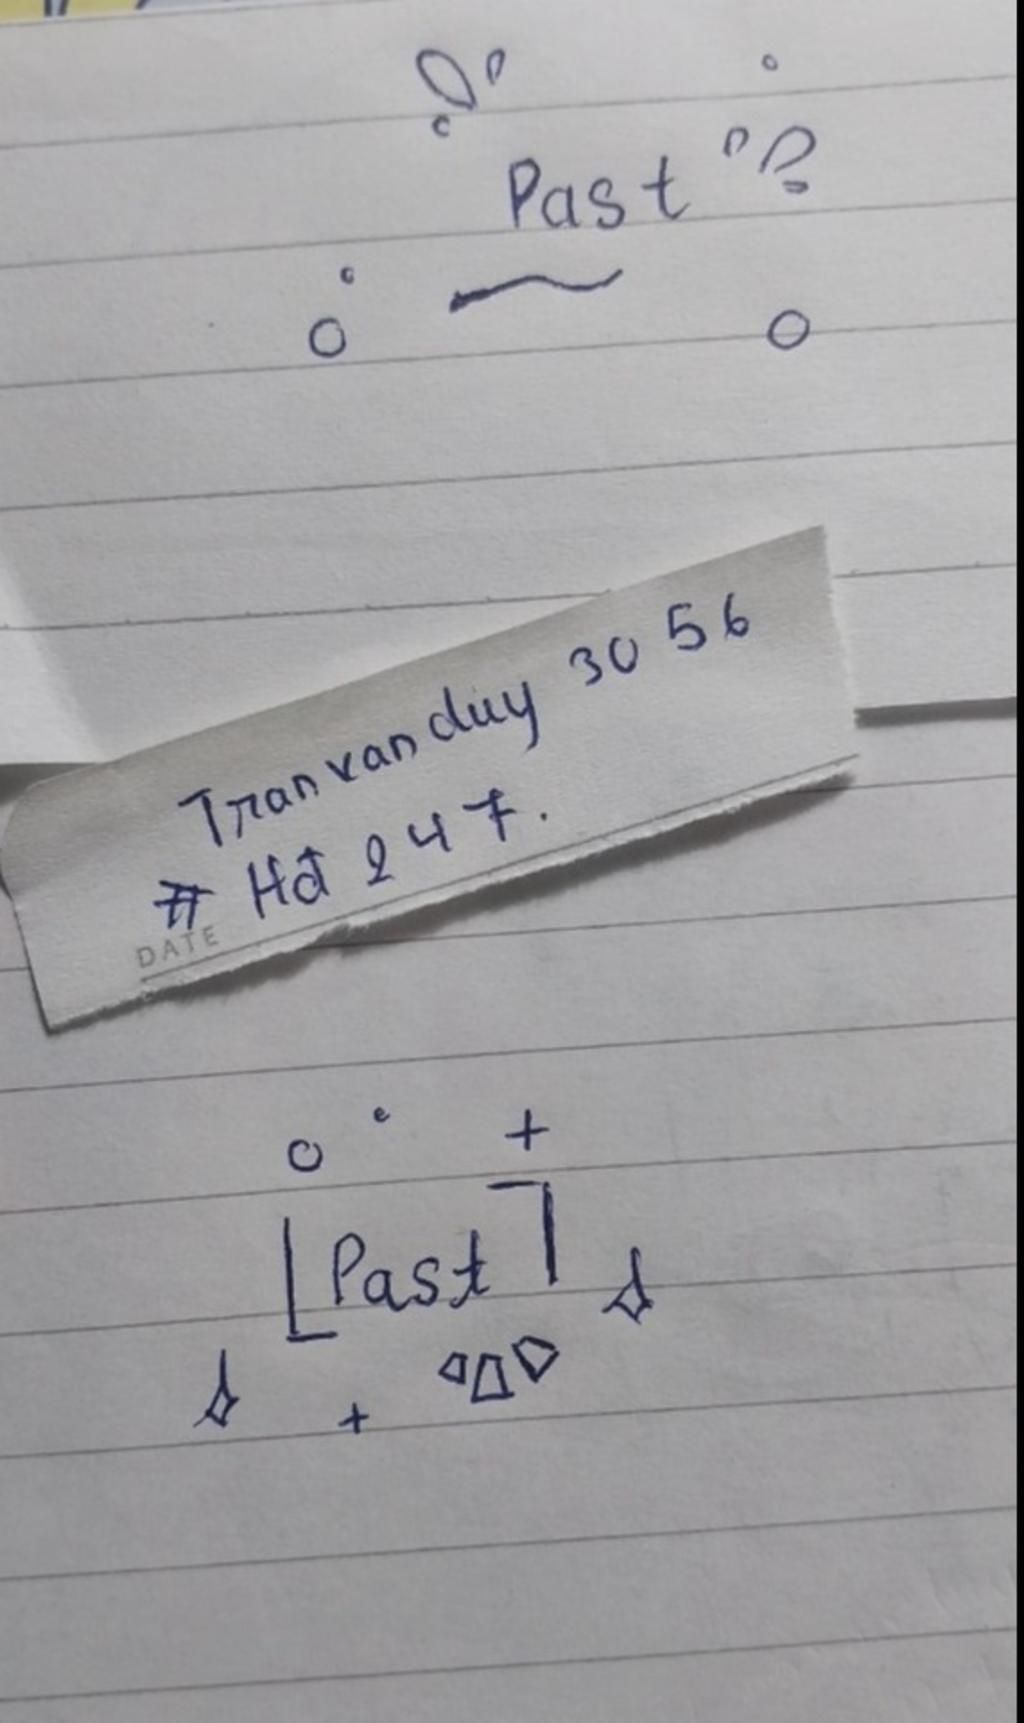 Past
Tranvanduy 3056
# Hđ 247.
DATE
Past